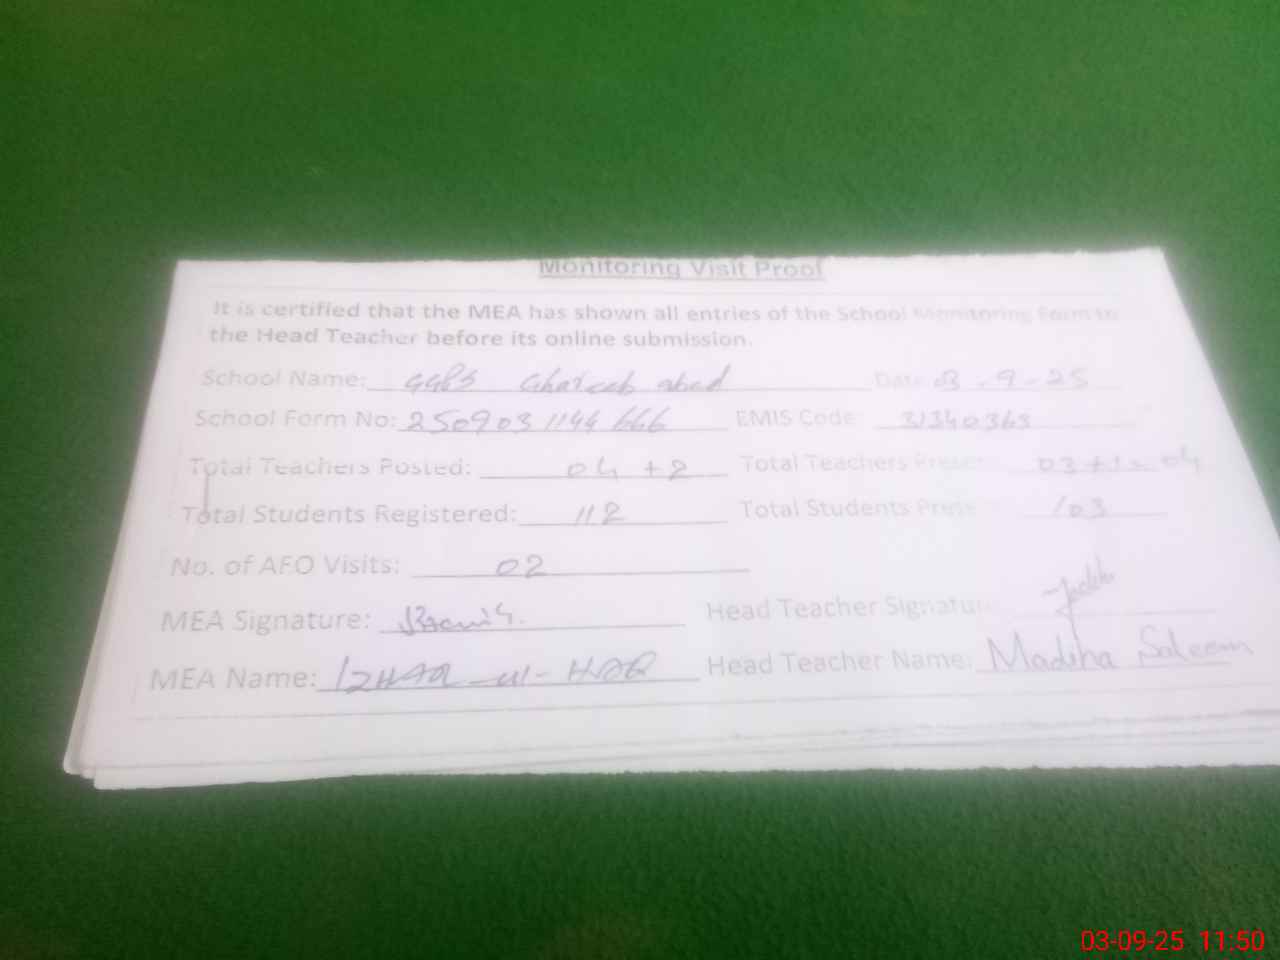 Monitoring Visit Proof
It is certified that the MEA has shown all entries of the School Monitoring Form to
the Head Teacher before its online submission.
School Name: GGPS Ghareeb abad Date: 03-9-25
School Form No: 2509031144666 EMIS Code: 31340363
Total Teachers Posted: 04 +2 Total Teachers Present 03+1= 04
Total Students Registered: 112 Total Students Prese 103
No. of AEO Visits: 02
MEA Signature: Head Teacher Signature
MEA Name: IZHAR-ul-HAQ Head Teacher Name: Madiha Saleem
03-09-25 11:50